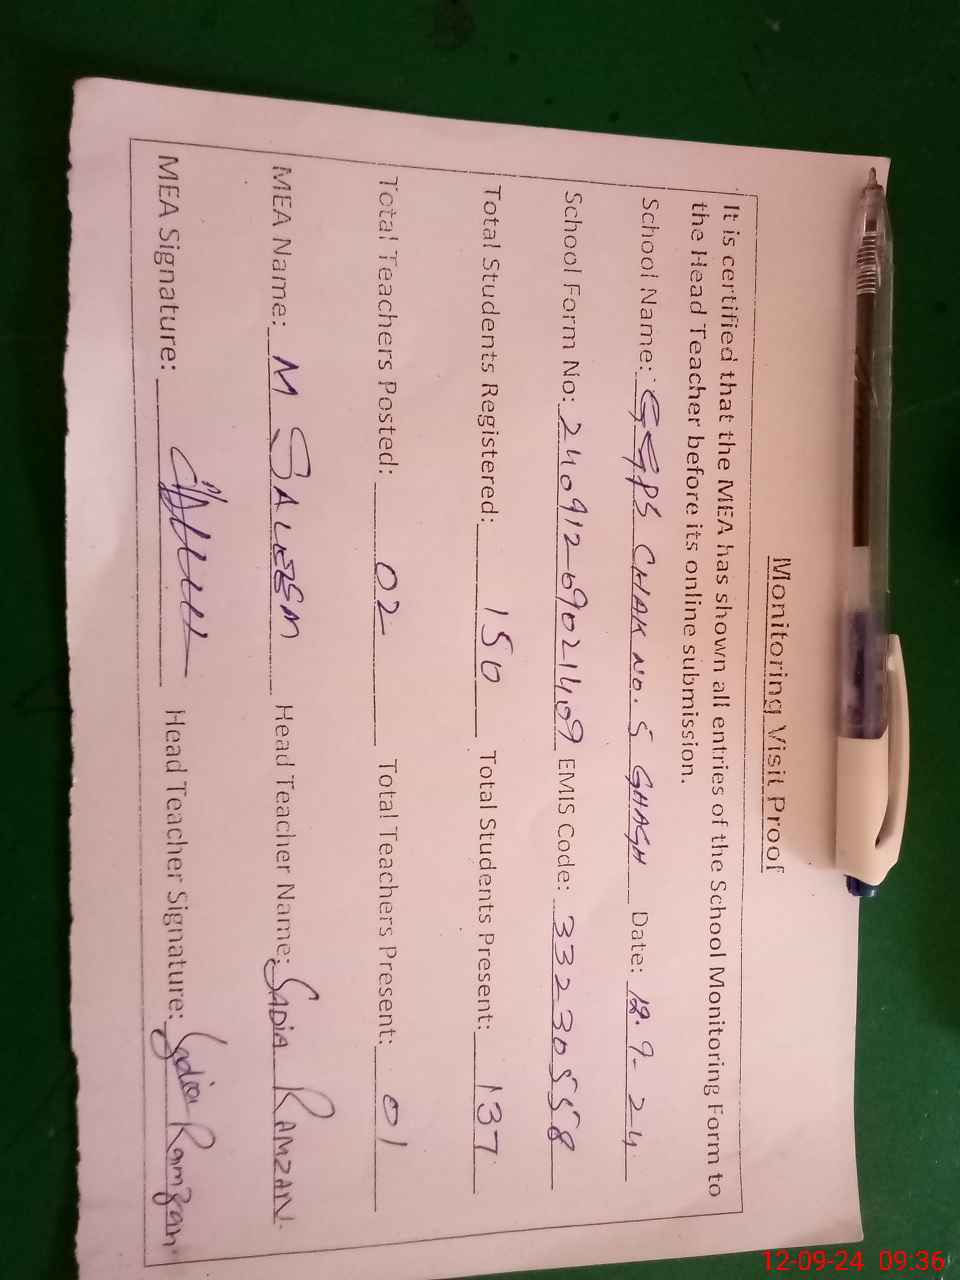 Monitoring Visit Proof
It is certified that the MEA has shown all entries of the School Monitoring Form to
the Head Teacher before its online submission.
School Name: GGPS CHAK NO. 5 GHAGH Date: 12.9-24
School Form No: 240912-69021409 EMIS Code: 33230558
Total Students Registered: 150 Total Students Present: 137
Total Teachers Posted: 02 Total Teachers Present: 01
MEA Name: M SALEEM Head Teacher Name: SADIA RAMZAN
MEA Signature: Head Teacher Signature: Sadia Ramzan
12-09-24 09:36